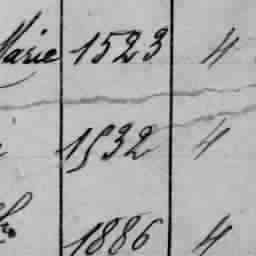 Marie 1523 4
1532 4
1886 4